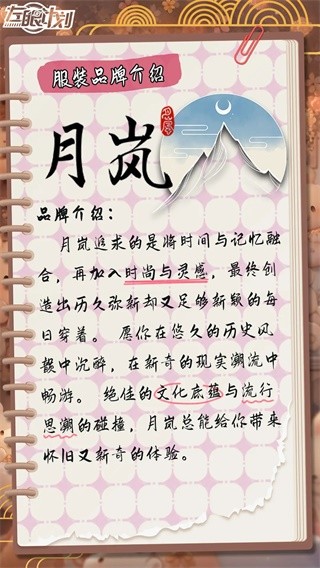 左眼计划
服装品牌介绍
月岚
品牌介绍：
月岚追求的是将时间与记忆融
合，再加入时尚与灵感，最终创
造出历久弥新却又足够新颖的每
日穿着。 愿你在悠久的历史风
韵中沉醉，在新奇的现实潮流中
畅游。 绝佳的文化底蕴与流行
思潮的碰撞，月岚总能给你带来
怀旧又新奇的体验。